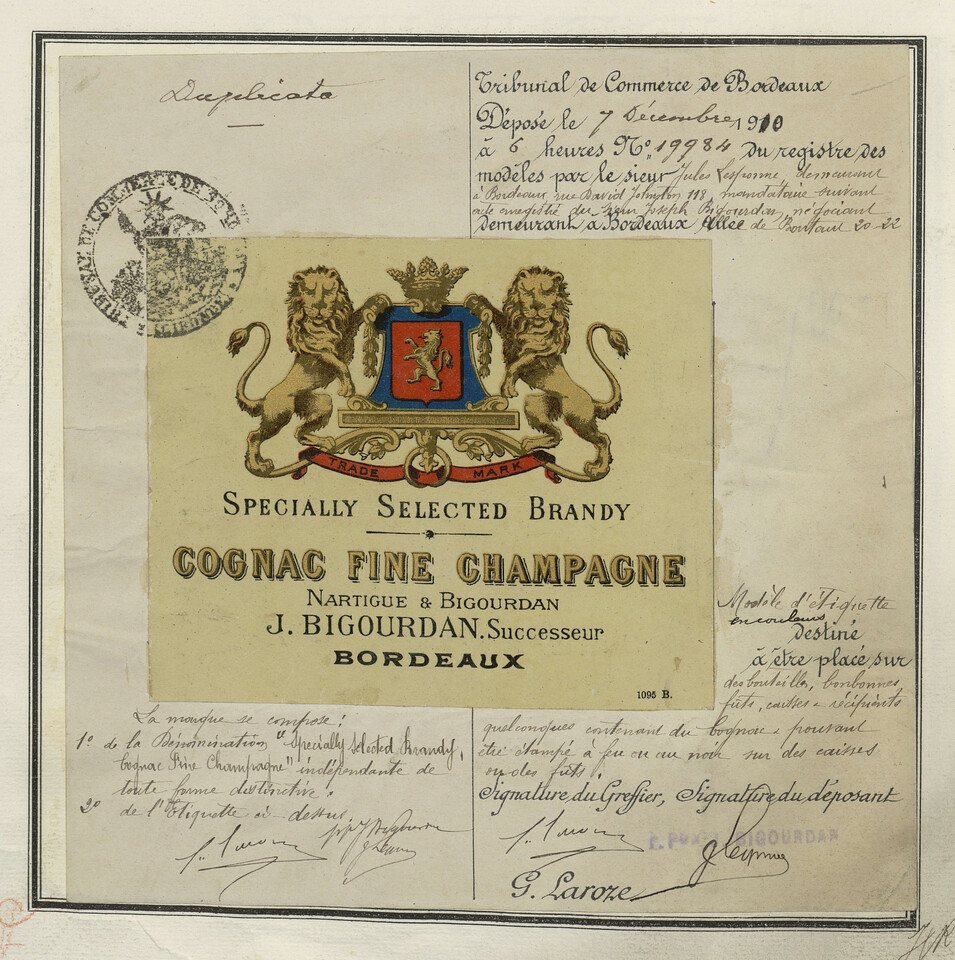 Duplicata
Tribunal de Commerce de Bordeaux
Déposé le 7 Décembre 1910
à 6 heures No. 19984 du registre des
modèles par le sieur Jules Lesponne, demeurant
à Bordeaux rue David Johnston 118, mandataire suivant
acte enregistré du sieur Joseph Bigourdan, négociant
demeurant à Bordeaux Allée de Boutaut 20-22
TRIBUNAL DE COMMERCE DE BORDEAUX
(GIRONDE)
TRADE MARK
SPECIALLY SELECTED BRANDY
COGNAC FINE CHAMPAGNE
NARTIGUE & BIGOURDAN
J. BIGOURDAN. Successeur
BORDEAUX
1095 B.
Modèle d'étiquette
en couleurs
destiné
à être placé sur
des bouteilles, bonbonnes,
fûts, caisses & récipients
quelconques contenant du Cognac & pouvant
être étampé à feu ou au noir sur des caisses
ou des fûts.
Signature du Greffier, Signature du déposant
P. PON J. BIGOURDAN
G. Laroze
La marque se compose:
1º de la Dénomination "Specially Selected Brandy,
Cognac Fine Champagne" indépendante de
toute forme distinctive.
2º de l'Etiquette ci-dessus.